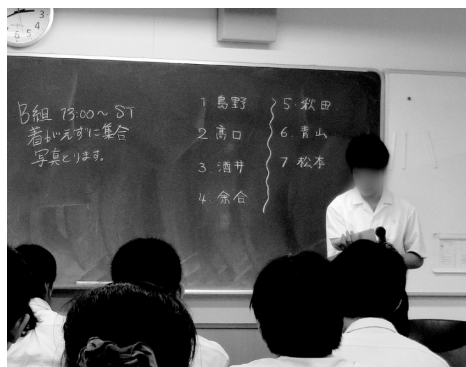 B組 13:00〜 ST
着がえずに集合
写真とります。
1 島野
2 高口
3. 酒井
4. 余合
5. 秋田
6. 青山
7 松本